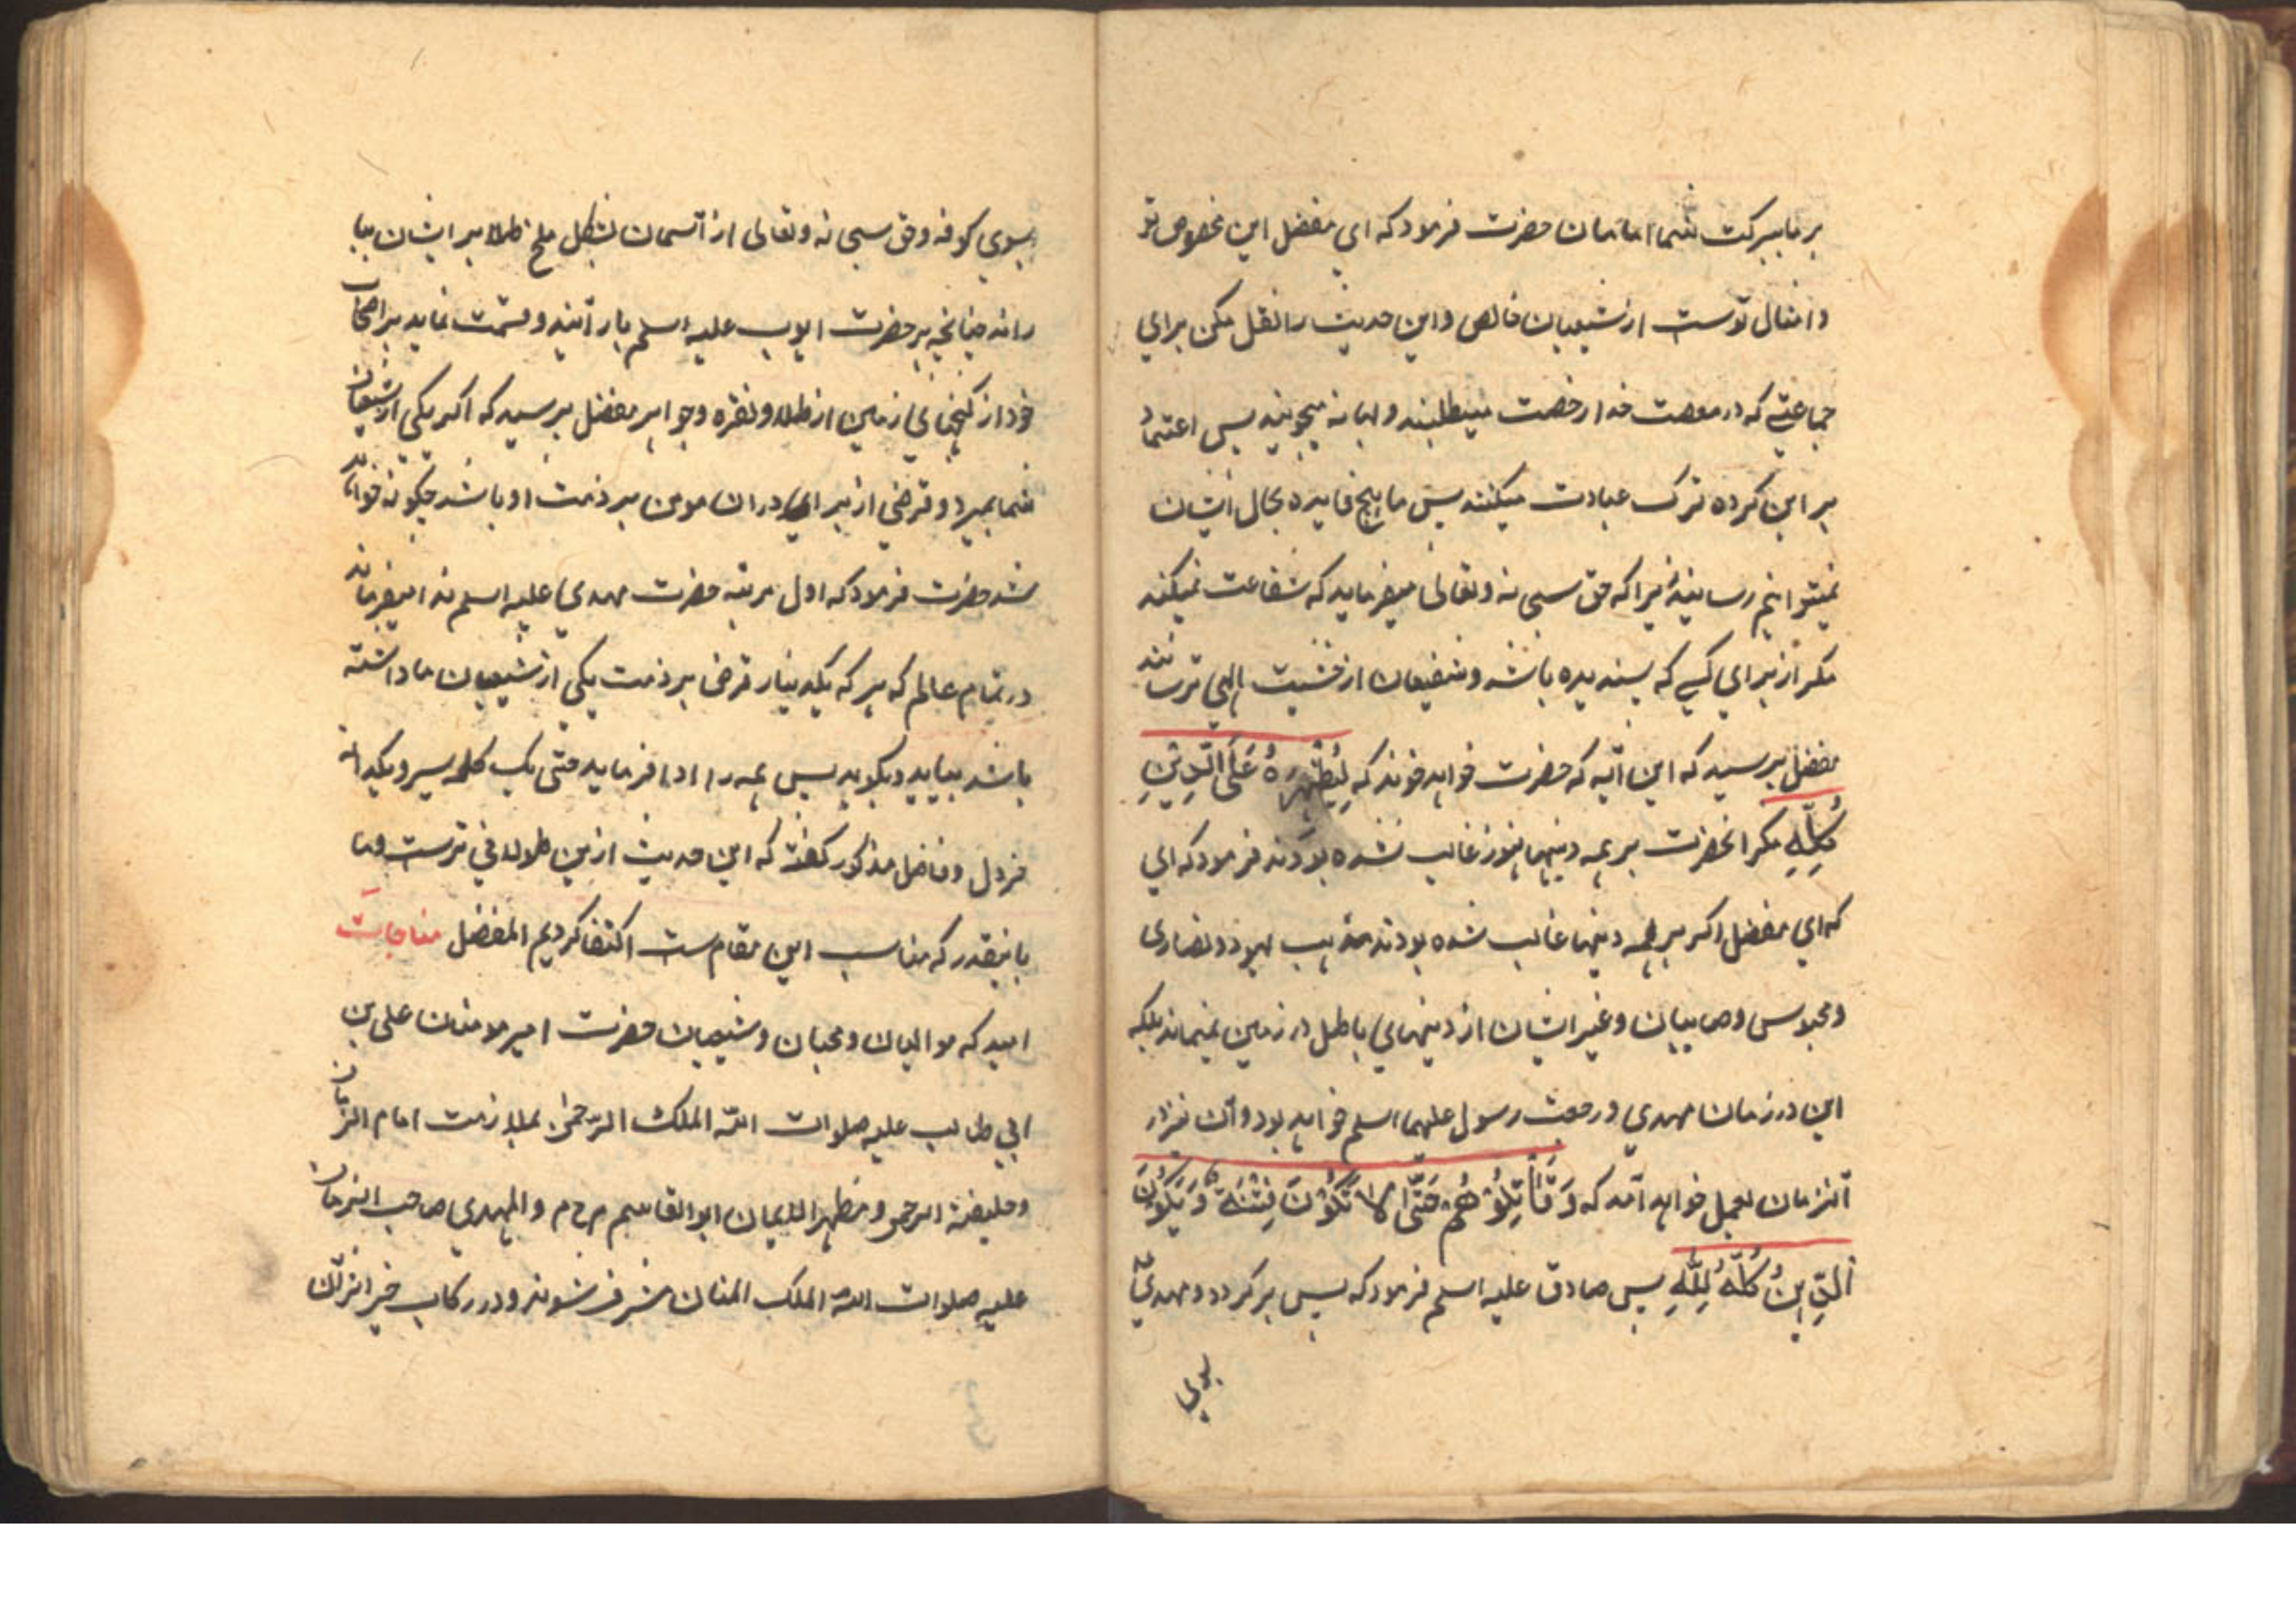 بر ما ببركت شما امامان حضرت فرمود كه اي مفضل اين مخصوص تو
و امثال توست از شيعيان خالص و اين حديث را نقل مكن براي
جماعتي كه در معصت خدا رخصت ميطلبند و بهانه ميجويند پس اعتماد
بر اين كرده ترك عبادت ميكنند پس ما هيچ فايده بحال ايشان
نميتوانيم رسانيد زيرا كه حق سبحانه و تعالى ميفرمايد كه شفاعت نميكنند
مكر از براي كسي كه پسنديده باشد و شفيعان از خشيت الهي ترسانند
مفضل پرسيد كه اين آيه كه حضرت خواهد خوند كه لِيُظْهِرَهُ عَلَى الدِّينِ
كُلِّهِ مكر انحضرت بر همه دينها هنوز غالب نشده بودند فرمود كه اي
كه اي مفضل اكر بر همه دينها غالب شده بودند مذهب يهود و نصارى
و مجوس و صابيان و غير ايشان از دينهاي باطل در زمين نميماند بلكه
اين در زمان مهدي و رجعت رسول عليهما اسلم خواهد بود و آن نيز در
آنزمان بعمل خواهد آمد كه وَ قَاتِلُوْهُمْ حَتّٰى لَا تَكُوْنَ فِتْنَةٌ وَ يَكُوْنَ
الدِّينُ كُلُّهُ لِلّٰهِ پس صادق عليه اسلم فرمود كه پس بر كردد مهدي
بسوي
بسوي كوفه و حق سبحانه و تعالى از آسمان بشكل ملخ طلا بر ايشان ببا
رانه چنانچه بر حضرت ايوب عليه اسلم بارانيد و قسمت نمايد بر اصحاب
خود از كنجهاي زمين از طلا و نقره و جواهر مفضل پرسيد كه اكر يكي از شيعيان
شما بميرد و قرضي از براي دران مومن بر ذمت او باشد چكونه خواهد
شد حضرت فرمود كه اول مرتبه حضرت مهدي عليه اسلم ندا ميفرمايد
در تمام عالم كه هر كه يكدينار قرض بر ذمت يكي از شيعيان ما داشته
باشد بيايد و بكويد پس همه را ادا فرمايد حتى يك كله سير و يكدانه
خردل و فاضل مذكور كفت كه اين حديث ازين طولاني ترست و ما
باينقدر كه مناسب اين مقام ست اكتفا كرديم المفضل مناجات
اميد كه مواليان و محبان و شيعيان حضرت امير مومنان على بن
ابي طالب عليه صلوات الله الملك الرحمن بملازمت امام الزمان
و خليفة الرحمن و مظهر الايمان ابو القاسم م ح م د المهدي صاحب الزمان
عليه صلوات الله الملك المنان مشرف شوند و در ركاب